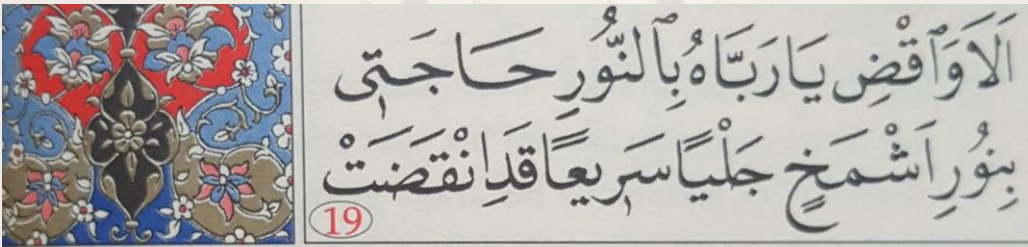 اَلَا وَٱقْضِ يَا رَبَّاهُ بِٱلنُّورِ حَاجَتٖى
بِنُورِ اَشْمَخٍ جَلْيًا سَرٖيعًا قَدِ انْقَضَتْ
19